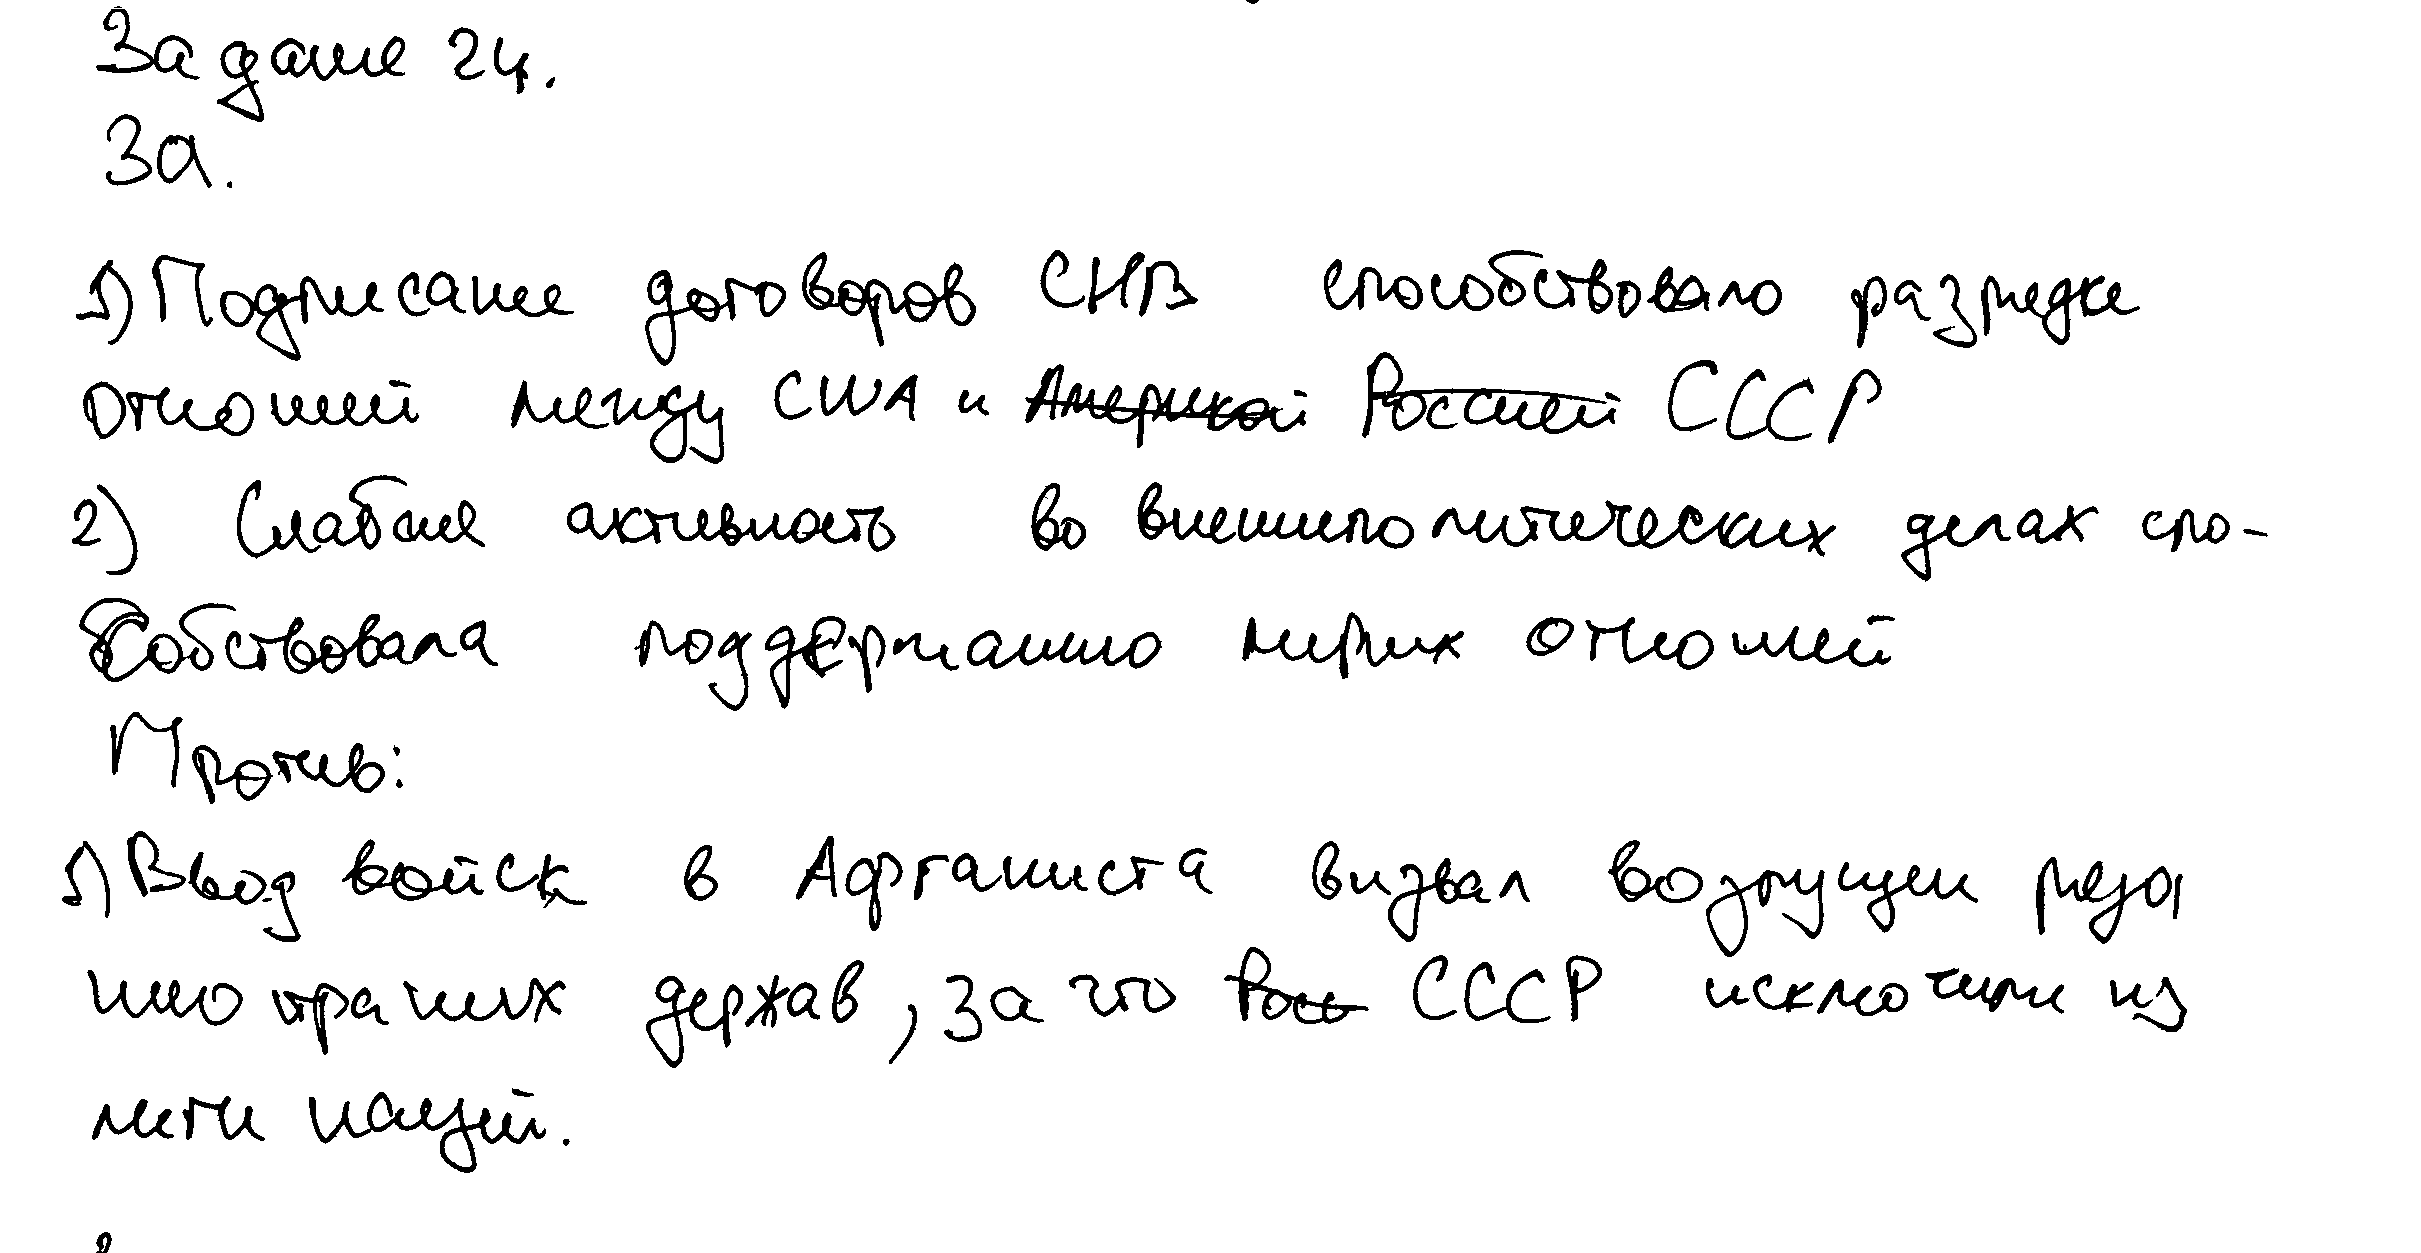 Задание 24.
За.
1) Подписание договоров СНВ способствовало разрядке
отношений между США и Америкой Россией СССР
2) Слабая активность во внешнеполитических делах спо-
собствовала поддержанию мирных отношений
Против:
1) Ввод войск в Афганиста вызвал возмущен ряда
иностраних держав, за что Росс СССР исключили из
лиги наций.